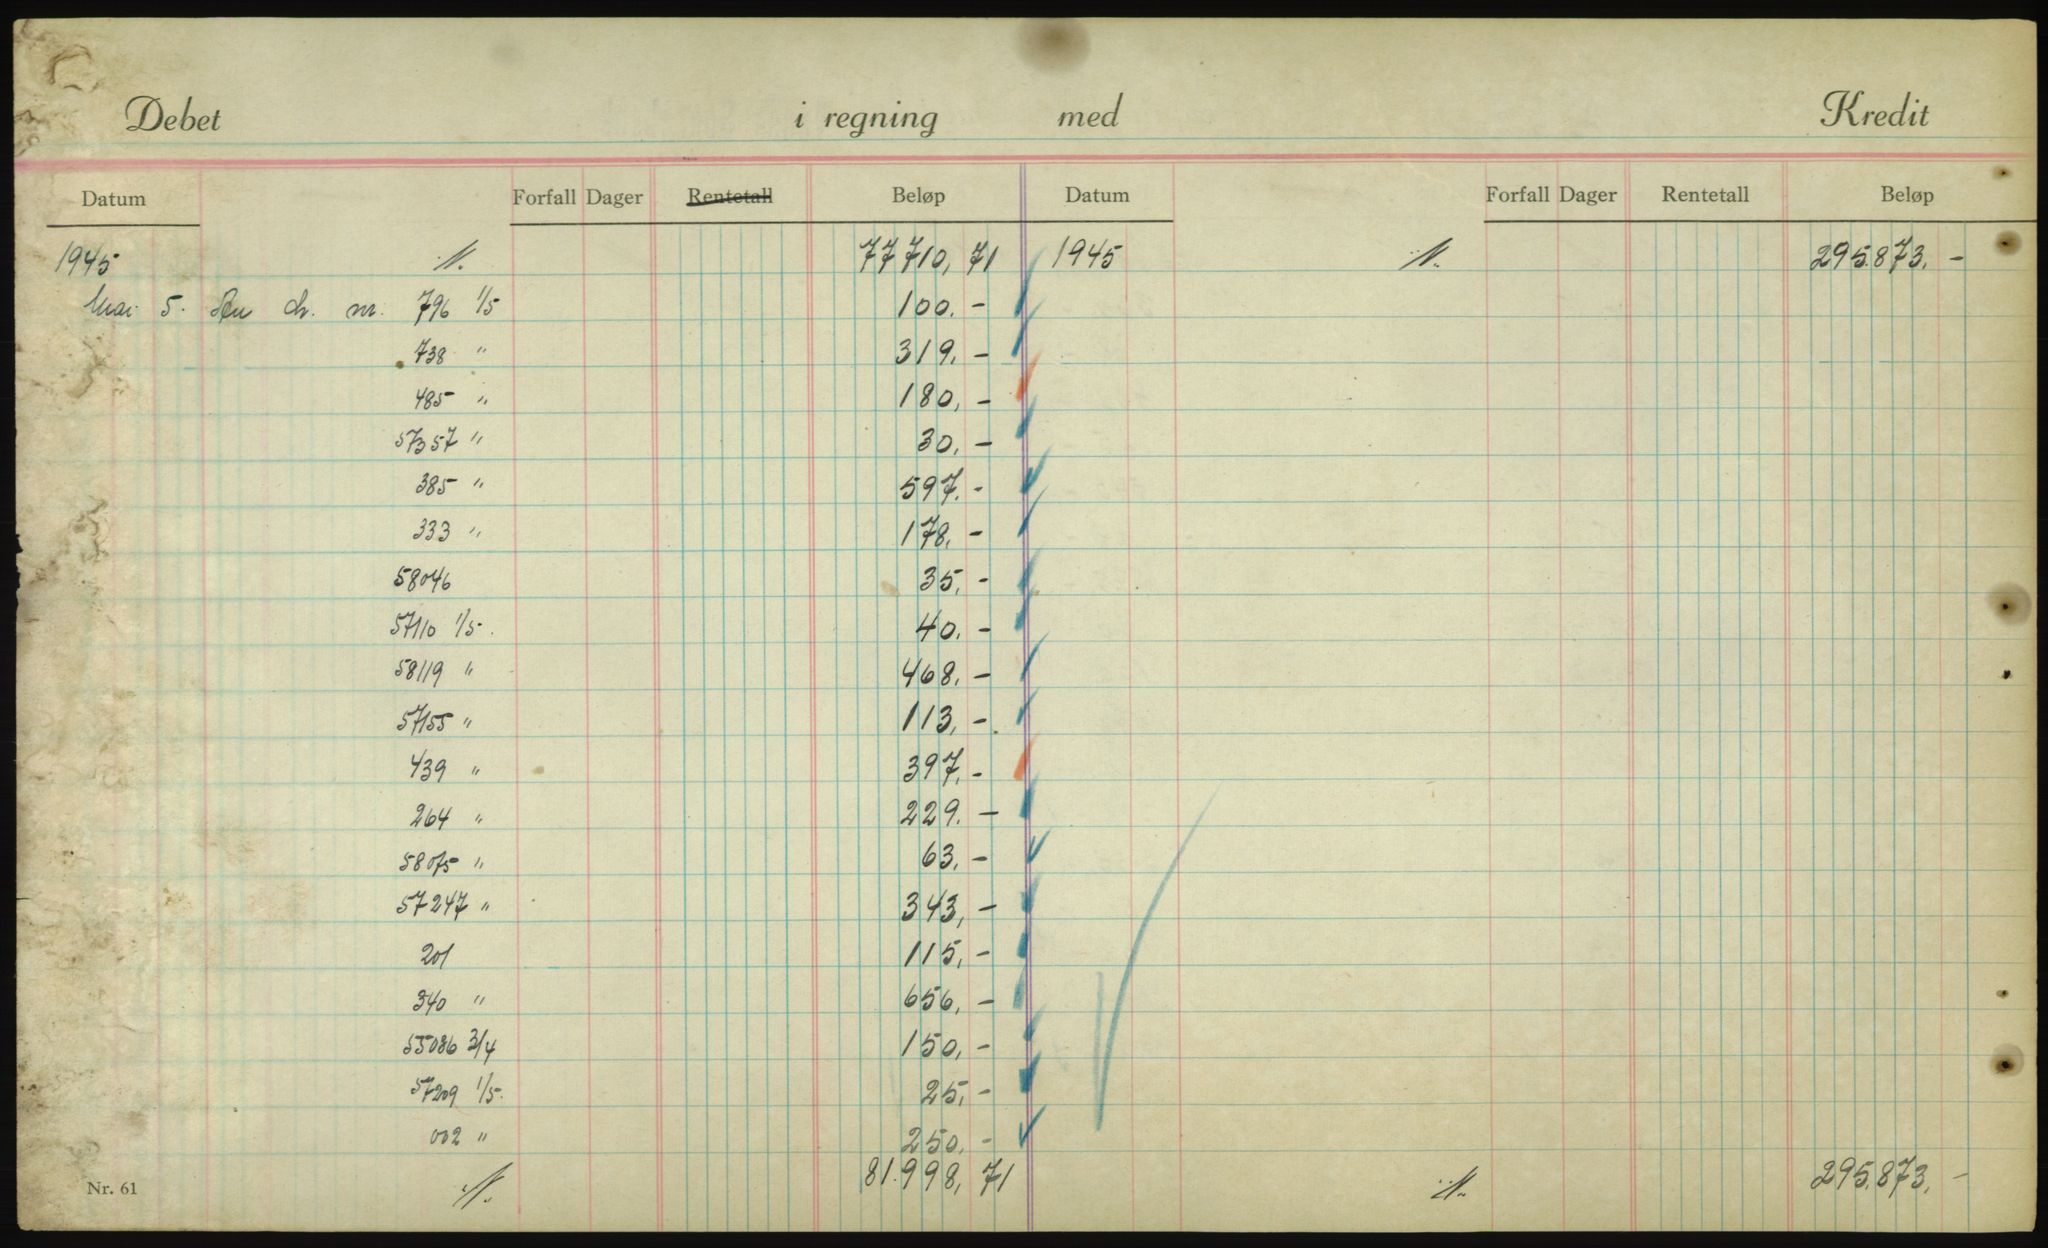 Debet i regning med Kredit
Datum Forfall Dager Rentetall Beløp Datum Forfall Dager Rentetall Beløp
1945 ·/·. 77710,71 1945 ·/·. 295.873.-
Mai 5. nr. 796 1/5 100.-
738 " 319.-
485 " 180.-
57357 " 30.-
385 " 597.-
333 " 178.-
58046 35.-
57110 1/5. 40.-
58119 " 468.-
57155 " 113.-
439 " 397.-
264 " 229.-
58075 " 63.-
57247 " 343.-
201 115.-
340 " 656.-
55086 3/4 150.-
57209 1/5. 25.-
002 " 250.-
Nr. 61 ·/·. 81.998,71 ·/·. 295.873.-